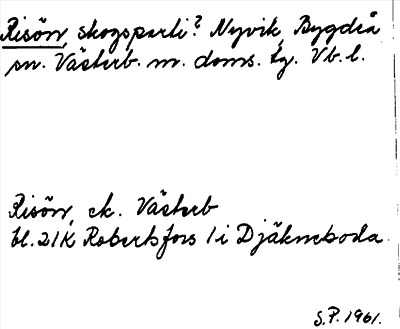 Risön, skogsparti? Nyvik, Bygdeå
sn. Västerb. m. doms. tg. Vb. l.
Risön, ek. Västerb
bl. 21K Robertsfors 1 i Djäkneboda.
S.P. 1961.